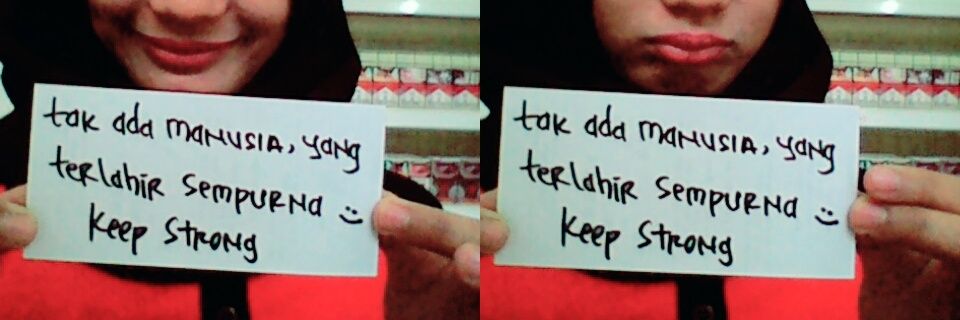 tak ada manusia, yang
terlahir sempurna :)
keep strong
tak ada manusia, yang
terlahir sempurna :)
keep strong